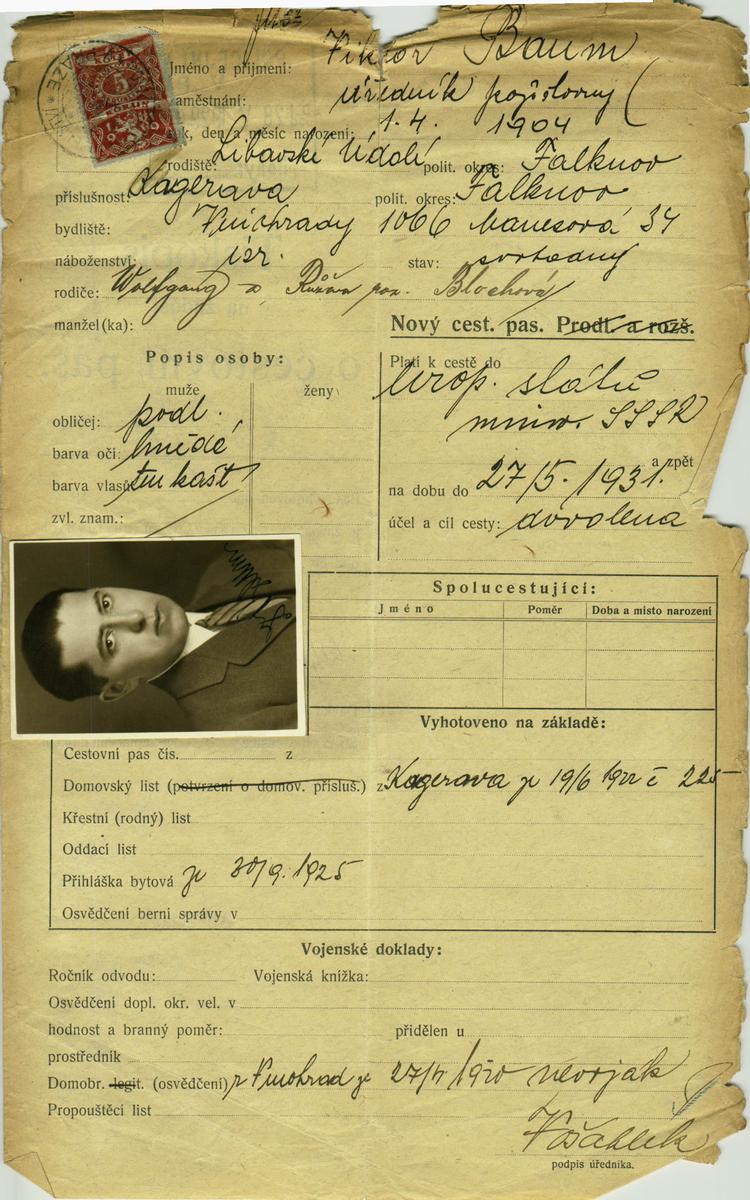 Jméno a příjmení: Viktor Baum
zaměstnání: úředník pojišťovny
Rok, den a měsíc narození: 1.4. 1904
rodiště: Libavské Údolí polit. okres: Falknov
příslušnost: Kagerava polit. okres: Falknov
bydliště: Vinohrady 1066 Manesová 34
náboženství: izr. stav: svobodný
rodiče: Wolfgang a Růžena roz. Blochová
manžel(ka):
Nový cest. pas. Prodl. a rozš.
Popis osoby:
muže ženy
obličej: podl.
barva oči: hnědé
barva vlasů: tm kašt
zvl. znam.:
Platí k cestě do evrop. států
mimo SSSR
a zpět
na dobu do 27/5. 1931.
účel a cíl cesty: dovolena
Spolucestující:
Jméno Poměr Doba a místo narození
Vyhotoveno na základě:
Cestovní pas čís. z
Domovský list (potvrzení o domov. přísluš.) z Kagerava ze 19/6 1922 č 225
Křestní (rodný) list
Oddací list
Přihláška bytová ze 30/9. 1925
Osvědčení berní správy v
Vojenské doklady:
Ročník odvodu: Vojenská knížka:
Osvědčení dopl. okr. vel. v
hodnost a branný poměr: přidělen u
prostředník
Domobr. legit. (osvědčení) z Vinohrad ze 1920 nevoják
Propouštěcí list
podpis úředníka.